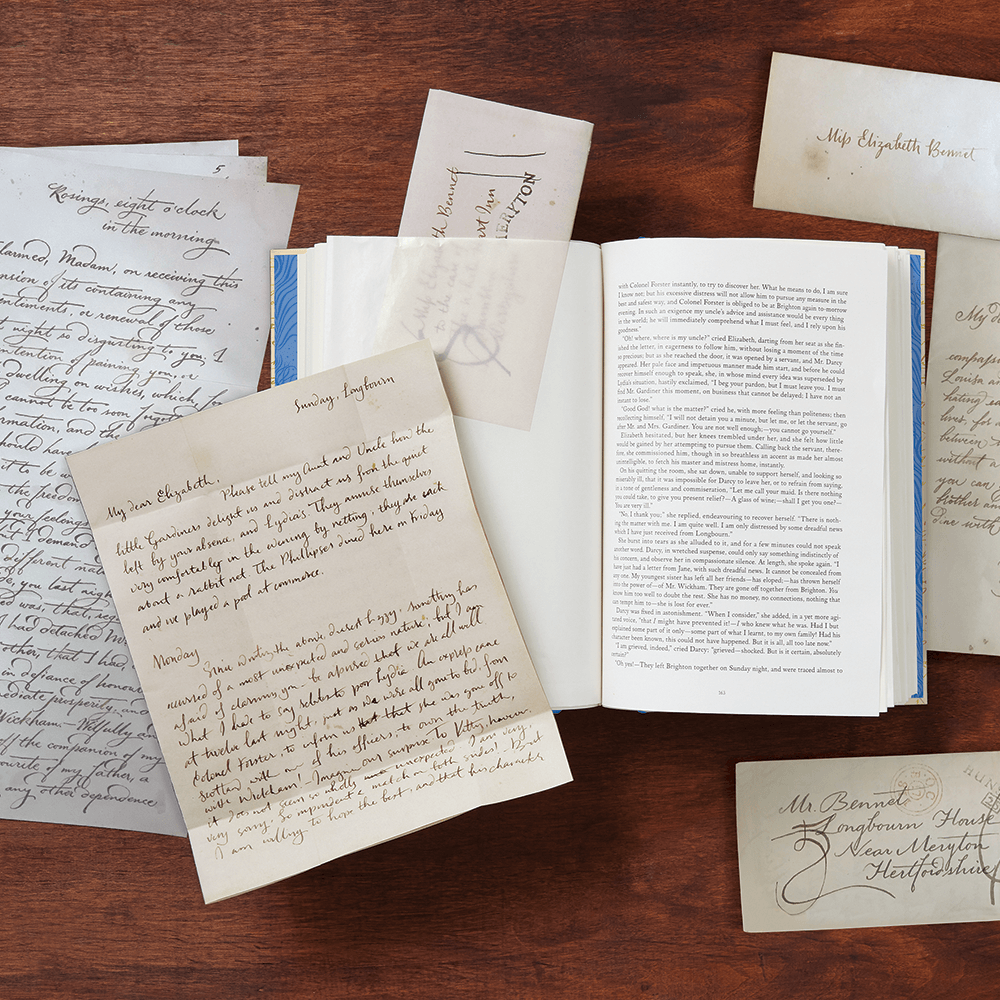 5
Rosings, eight o'clock
in the morning
larmed, Madam, on receiving this
of its containing any
entiments, or renewal of those
night so disgusting to you. I
ntention of paining you, or
dwelling on wishes, which, for
cannot be too soon
and the
should have
it to be
the freedom
I demand
different
you last night
was, that,
I had detached
other, that I had,
in defiance of
prosperity, and
Wickham.— Wilfully
off the companion of my
of my father, a
any other dependence
Sunday, Longbourn
My dear Elizabeth,
Please tell my Aunt and Uncle how the
little Gardiners delight us and distract us from the quiet
left by your absence, and Lydia's. They amuse themselves
very comfortably in the evening by netting; they are each
about a rabbit net. The Phillipses dined here on Friday
and we played a pool at commerce.
Monday
Since writing the above, dearest Lizzy, something has
occurred of a most unexpected and serious nature; but I am
afraid of alarming you – be assured that we are all well.
What I have to say relates to poor Lydia. An express came
at twelve last night, just as we were all gone to bed, from
Colonel Forster to inform us that she was gone off to
Scotland with one of his officers; to own the truth,
with Wickham! Imagine our surprise. To Kitty, however,
it does not seem so wholly unexpected. I am very,
very sorry. So imprudent a match on both sides! But
I am willing to hope the best, and that his character
th Bennet
Inn
MERYTON
with Colonel Forster instantly, to try to discover her. What he means to do, I am sure
I know not; but his excessive distress will not allow him to pursue any measure in the
best and safest way, and Colonel Forster is obliged to be at Brighton again to-morrow
evening. In such an exigence my uncle's advice and assistance would be every thing
in the world; he will immediately comprehend what I must feel, and I rely upon his
goodness."
"Oh! where, where is my uncle?" cried Elizabeth, darting from her seat as she fin-
ished the letter, in eagerness to follow him, without losing a moment of the time
so precious; but as she reached the door, it was opened by a servant, and Mr. Darcy
appeared. Her pale face and impetuous manner made him start, and before he could
recover himself enough to speak, she, in whose mind every idea was superseded by
Lydia's situation, hastily exclaimed, "I beg your pardon, but I must leave you. I must
find Mr. Gardiner this moment, on business that cannot be delayed; I have not an
instant to lose."
"Good God! what is the matter?" cried he, with more feeling than politeness; then
recollecting himself, "I will not detain you a minute, but let me, or let the servant, go
after Mr. and Mrs. Gardiner. You are not well enough;—you cannot go yourself."
Elizabeth hesitated, but her knees trembled under her, and she felt how little
would be gained by her attempting to pursue them. Calling back the servant, there-
fore, she commissioned him, though in so breathless an accent as made her almost
unintelligible, to fetch his master and mistress home, instantly.
On his quitting the room, she sat down, unable to support herself, and looking so
miserably ill, that it was impossible for Darcy to leave her, or to refrain from saying,
in a tone of gentleness and commiseration, "Let me call your maid. Is there nothing
you could take, to give you present relief?—A glass of wine;—shall I get you one?—
You are very ill."
"No, I thank you;" she replied, endeavouring to recover herself. "There is noth-
ing the matter with me. I am quite well. I am only distressed by some dreadful news
which I have just received from Longbourn."
She burst into tears as she alluded to it, and for a few minutes could not speak
another word. Darcy, in wretched suspense, could only say something indistinctly of
his concern, and observe her in compassionate silence. At length, she spoke again. "I
have just had a letter from Jane, with such dreadful news. It cannot be concealed from
any one. My youngest sister has left all her friends—has eloped;—has thrown herself
into the power of—of Mr. Wickham. They are gone off together from Brighton. You
know him too well to doubt the rest. She has no money, no connections, nothing that
can tempt him to—she is lost for ever."
Darcy was fixed in astonishment. "When I consider," she added, in a yet more agi-
tated voice, "that I might have prevented it!—I who knew what he was. Had I but
explained some part of it only—some part of what I learnt, to my own family! Had his
character been known, this could not have happened. But it is all, all too late now."
"I am grieved, indeed," cried Darcy; "grieved—shocked. But is it certain, absolutely
certain?"
"Oh yes!—They left Brighton together on Sunday night, and were traced almost to
Miss Elizabeth Bennet
My d
compass
Louisa a
hating ea
lives, for a
between
without a
you can
Brother an
Dine with
Mr. Bennet
Longbourn House
Near Meryton
Hertfordshire